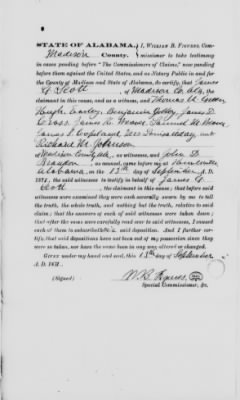 STATE OF ALABAMA, } I, WILLIAM B. FIGURES, Com-
Madison County, } missioner to take testimony
in cases pending before "The Commissioners of Claims," now pending
before them against the United States, and as Notary Public in and for
the County of Madison and State of Alabama, do certify, that James
G Scott, of Madison Co Ala,
the claimant in this cause, and as a witness, and Thomas
Hugh Benjamin James D.
James Weaver, Samuel
James S. Copeland, and
Richard W Johnson
of Madison County Ala, as witnesses, and John D.
Brandon, as counsel, came before me at Huntsville
Alabama, on the 13th day of September, A. D.
1871, the said witnesses to testify in behalf of James G.
Scott, the claimant in this cause; that before said
witnesses were examined they were each severally sworn by me to tell
the truth, the whole truth, and nothing but the truth, relative to said
claim; that the answers of each of said witnesses were taken down; and
that after the same were carefully read over to said witnesses, I caused
each of them to subscribe said deposition. And I further certi-
fy, that said depositions have not been out of my possession since they
were so taken, nor have the same been in any way altered or changed.
GIVEN under my hand and seal, this 13th day of September
A. D. 1871.
(Signed) W. B. Figures,
Special Commissioner, &c.